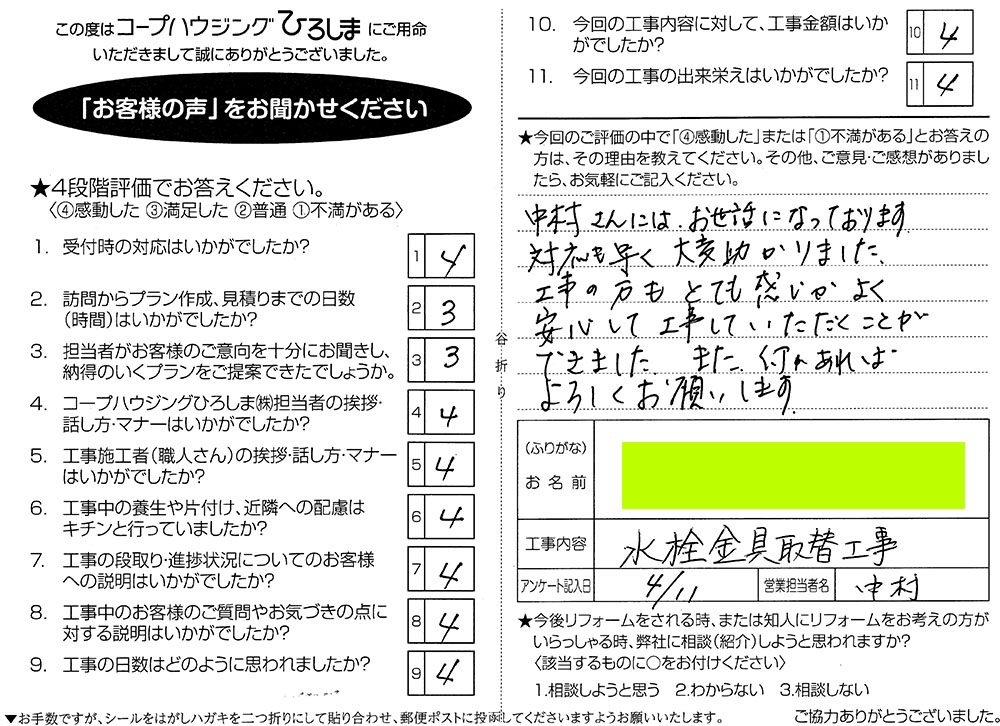 この度はコープハウジングひろしまにご用命
いただきまして誠にありがとうございました。
「お客様の声」をお聞かせください
★4段階評価でお答えください。
〈④感動した ③満足した ②普通 ①不満がある〉
1. 受付時の対応はいかがでしたか?
1 4
2. 訪問からプラン作成、見積りまでの日数
(時間)はいかがでしたか?
2 3
3. 担当者がお客様のご意向を十分にお聞きし、
納得のいくプランをご提案できたでしょうか。
3 3
4. コープハウジングひろしま㈱担当者の挨拶・
話し方・マナーはいかがでしたか?
4 4
5. 工事施工者(職人さん)の挨拶・話し方・マナー
はいかがでしたか?
5 4
6. 工事中の養生や片付け、近隣への配慮は
キチンと行っていましたか?
6 4
7. 工事の段取り・進捗状況についてのお客様
への説明はいかがでしたか?
7 4
8. 工事中のお客様のご質問やお気づきの点に
対する説明はいかがでしたか?
8 4
9. 工事の日数はどのように思われましたか?
9 4
▼お手数ですが、シールをはがしハガキを二つ折りにして貼り合わせ、郵便ポストに投函してくださいますようお願いいたします。
谷折り
10. 今回の工事内容に対して、工事金額はいか
がでしたか?
10 4
11. 今回の工事の出来栄えはいかがでしたか?
11 4
★今回のご評価の中で「④感動した」または「①不満がある」とお答えの
方は、その理由を教えてください。その他、ご意見・ご感想がありまし
たら、お気軽にご記入ください。
中村さんには、お世話になっております
対応も早く 大変助かりました、
工事の方もとても感じがよく
安心して工事していただくことが
できました また、何かあれば
よろしくお願いします
(ふりがな)
お名前
工事内容 水栓金具取替工事
アンケート記入日 4/11 営業担当者名 中村
★今後リフォームをされる時、または知人にリフォームをお考えの方が
いらっしゃる時、弊社に相談(紹介)しようと思われますか?
〈該当するものに○をお付けください〉
1.相談しようと思う 2.わからない 3.相談しない
ご協力ありがとうございました。